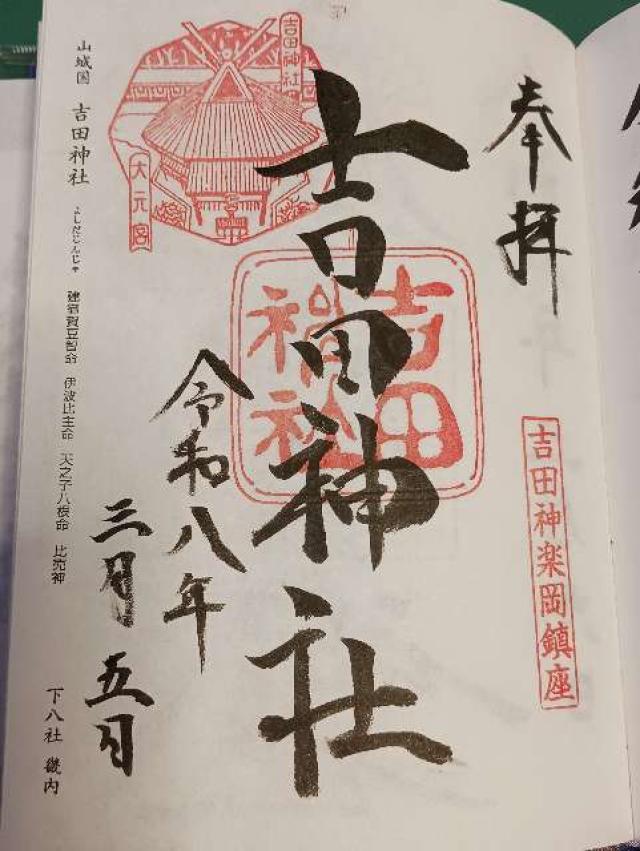 奉拝
吉田神楽岡鎮座
吉田神社
吉田神社
大元宮
吉田神社
令和八年
三月五日
山城国 吉田神社 よしだじんじゃ 建御賀豆智命 伊波比主命 天之子八根命 比売神 下八社 畿内